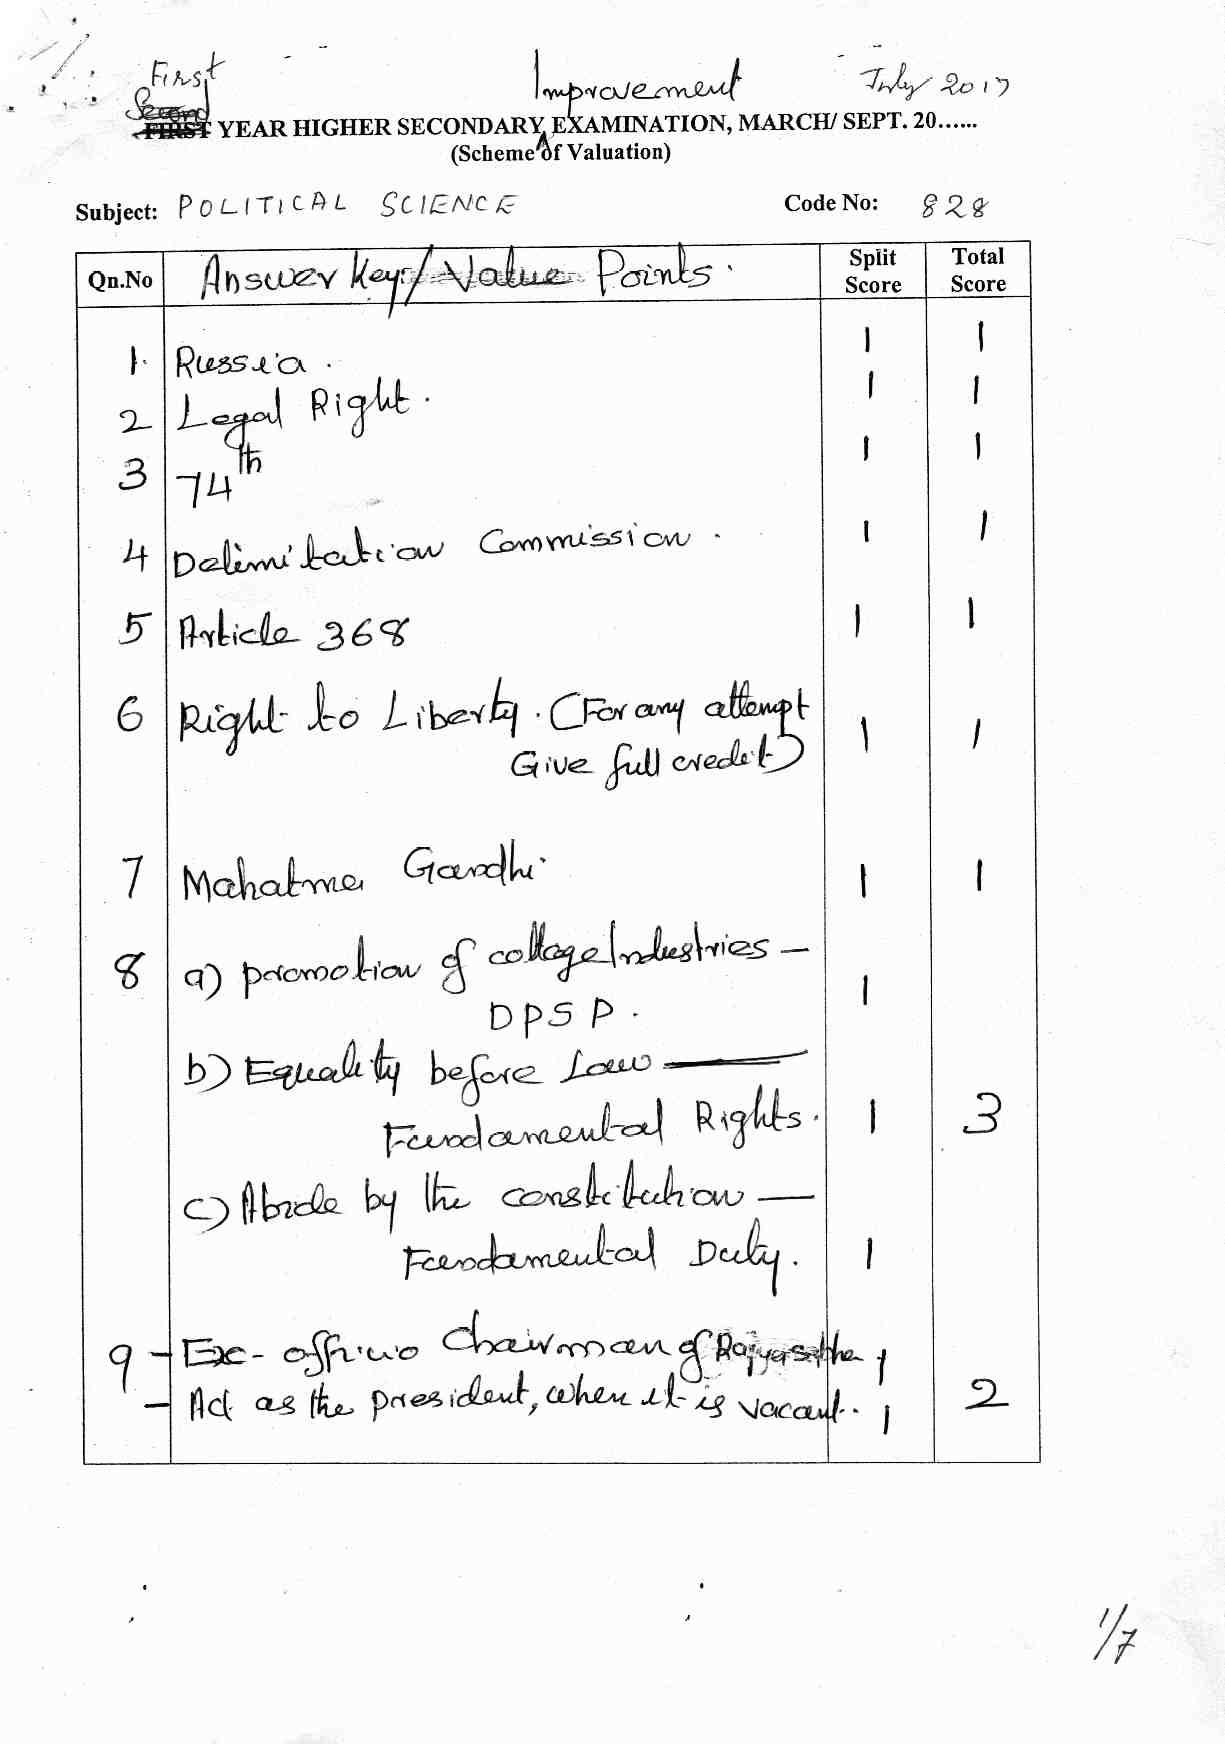 First
Improvement
July 2017
Second
FIRST YEAR HIGHER SECONDARY EXAMINATION, MARCH/ SEPT. 20......
(Scheme of Valuation)
Subject: POLITICAL SCIENCE Code No: 828
Qn.No Answer Key/Value Points. Split Score Total Score
1. Russia. 1 1
2 Legal Right. 1 1
3 74th 1 1
4 Delimitation Commission. 1 1
5 Article 368 1 1
6 Right to Liberty. (For any attempt
Give full credit) 1 1
7 Mahatma Gandhi 1 1
8 a) promotion of cottage Industries –
DPSP. 1
b) Equality before Law —
Fundamental Rights. 1 3
c) Abide by the constitution —
Fundamental Duty. 1
9 – Ex-officio Chairman of Rajyasabha 1
– Act as the president, when it is vacant. 1 2
1/7